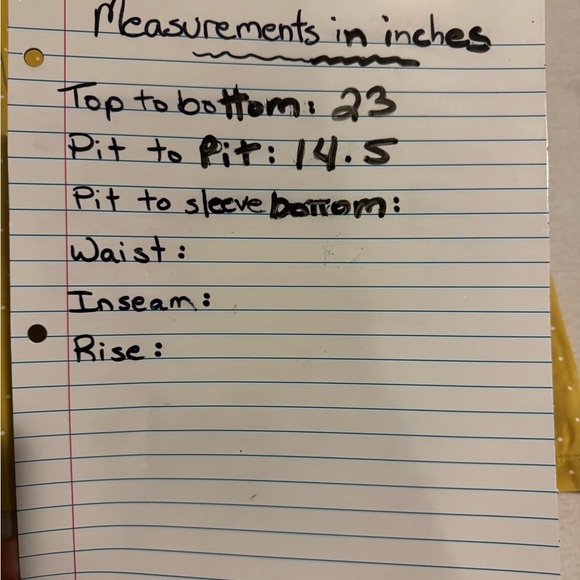 Measurements in inches
Top to bottom: 23
Pit to Pit: 14.5
Pit to sleeve bottom:
Waist:
Inseam:
Rise: